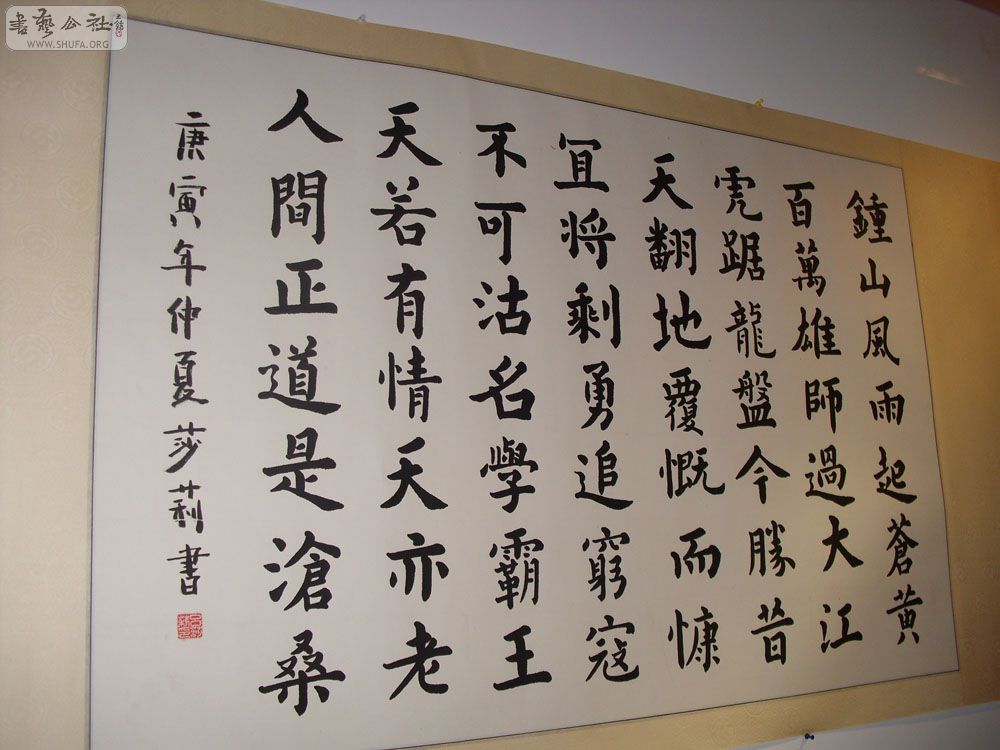 鍾山風雨起蒼黃
百萬雄師過大江
虎踞龍盤今勝昔
天翻地覆慨而慷
冝將剩勇追窮寇
不可沽名學霸王
天若有情天亦老
人間正道是滄桑
庚寅年仲夏莎莉書
書藝公社
WWW.SHUFA.ORG